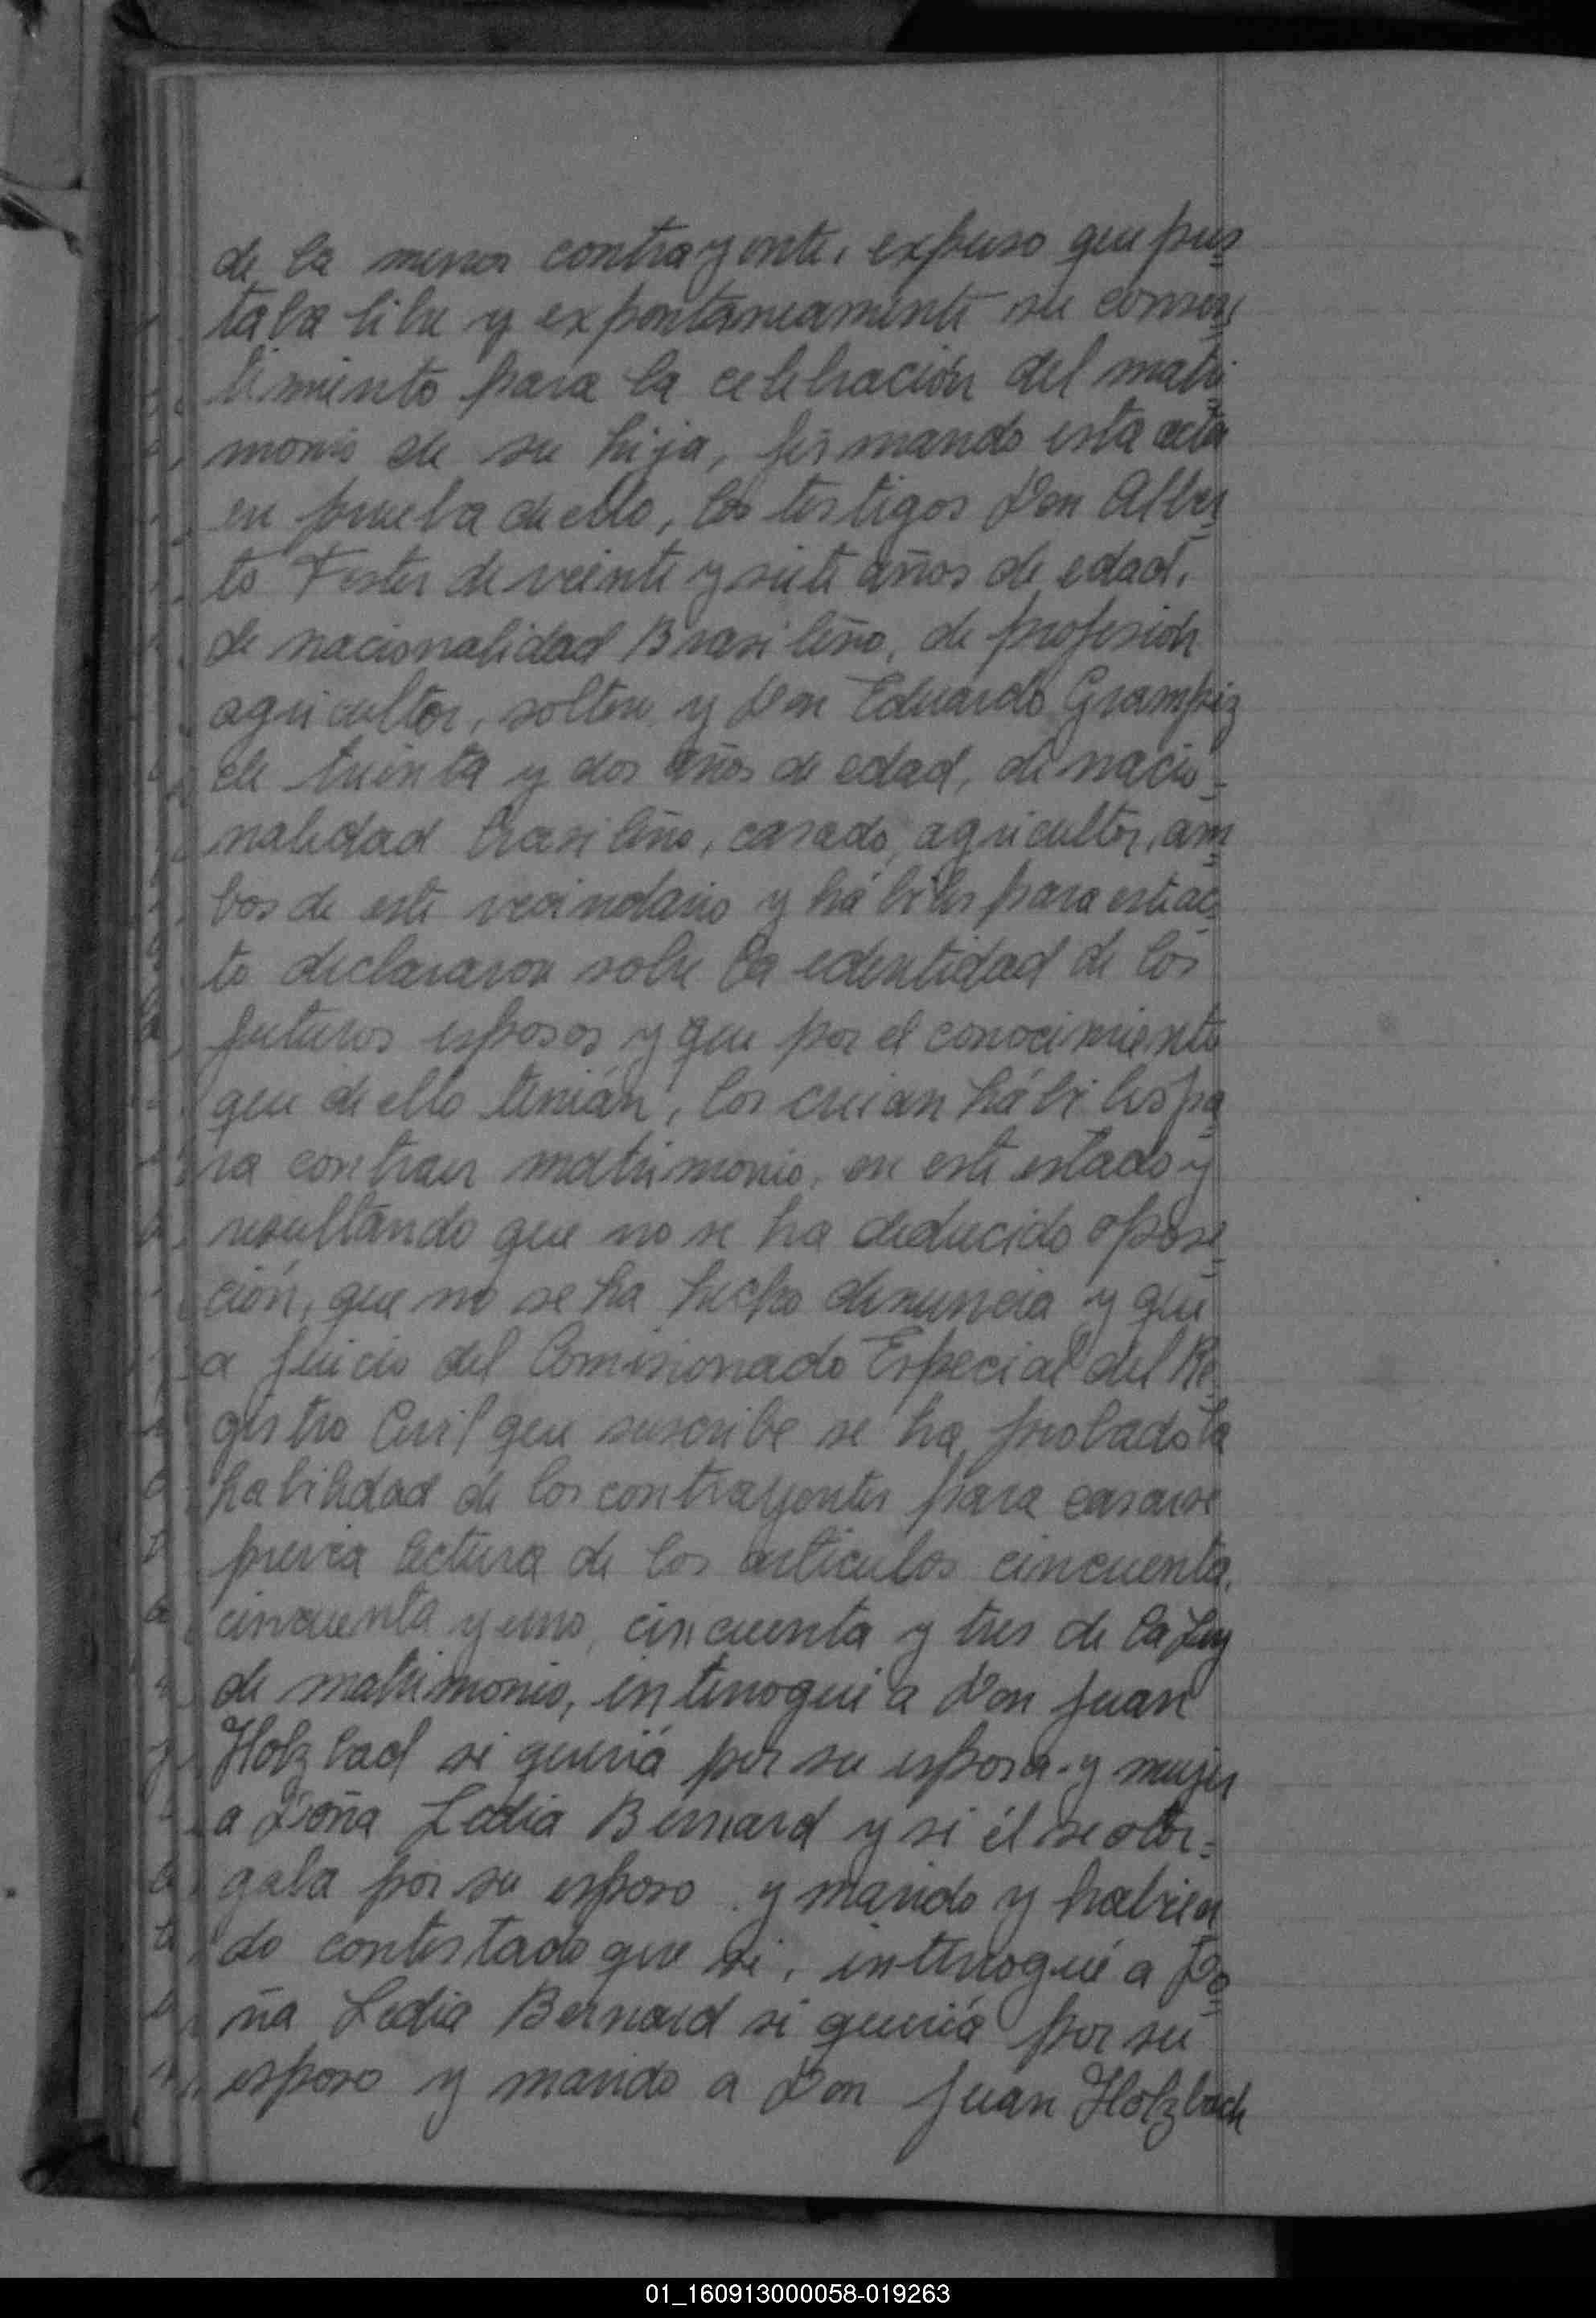 de la menor contrayente, expuso que pres
taba libre y expontaneamente su consen
timiento para la celebración del matri
monio de su hija, firmando esta acta
en prueba de ello, los testigos Don Alber
to Fester de veinte y siete años de edad,
de nacionalidad Brasileño, de profesión
agricultor, soltero y Don Eduardo Grampiz
de treinta y dos años de edad, de nacio-
nalidad brasileño, casado, agricultor, am
bos de este vecindario y hábiles para este ac
to declararon sobre la edentidad de los
futuros esposos y que por el conocimiento
que de ello tenián, los creian hábiles pa
ra contraer matrimonio, en este estado y
resultando que no se ha deducido oposi
ción, que no se ha hecho denuncia y que
a juicio del Comisionado Especial del Re
gistro Civil que suscribe se ha probado la
habilidad de los contrayentes para casarse
previa lectura de los articulos cincuenta,
cincuenta y uno, cincuenta y tres de la Ley
de matrimonio, interrogué a Don Juan
Holzbad si queriá por su esposa y mujer
a Doña Ledia Bernard y si él se otor=
gaba por su esposo y marido y habien
do contestado que si, interrogué a Do
ña Ledia Bernard si queriá por su
esposo y marido a Don Juan Holzbach
01_160913000058-019263